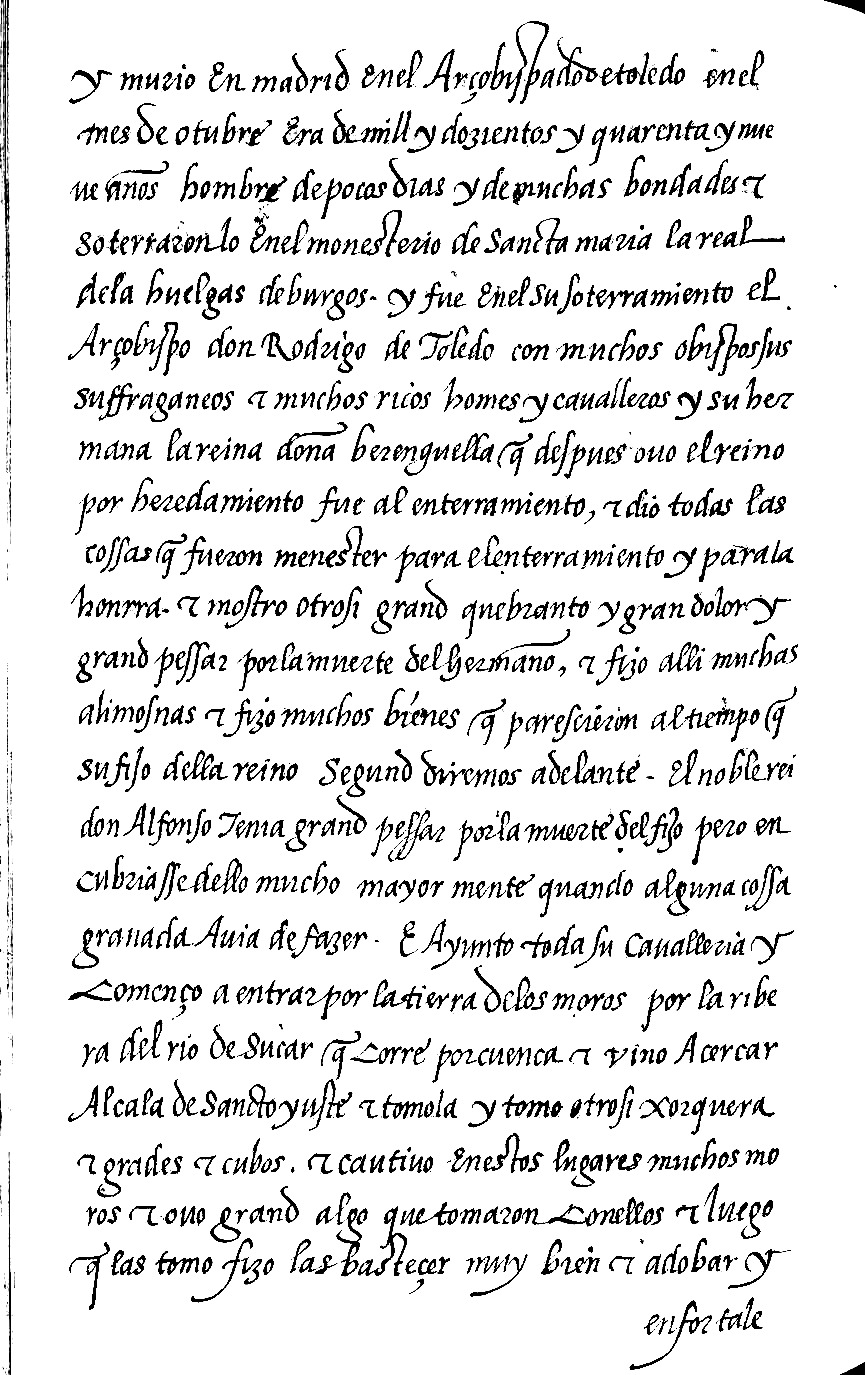 y murio En madrid Enel Arçobispado de toledo enel
mes de otubre Era de mill y dozientos y quarenta y nue
ue años hombre de pocos dias y de muchas bondades ⁊
soterraronlo Enel monesterio de Sancta maria la real
dela huelgas de burgos. y fue Enel su soterramiento el
Arçobispo don Rodrigo de Toledo con muchos obispos sus
suffraganeos ⁊ muchos ricos homes y caualleros y su her
mana la reina doña berenguella q̃ despues ouo el reino
por heredamiento fue al enterramiento, ⁊ dio todas las
cossas q̃ fueron menester para el enterramiento y para la
honrra. ⁊ mostro otrosi grand quebranto y gran dolor y
grand pessar por la muerte del hermano, ⁊ fizo alli muchas
alimosnas ⁊ fizo muchos bienes q̃ parescieron al tiempo q̃
su fijo della reino Segund diremos adelante. El noble rei
don Alfonso Tenia grand pessar por la muerte del fijo pero en
cubriasse dello mucho mayor mente quando alguna cossa
granada Auia de fazer. E Ayunto toda su Caualleria y
Començo a entrar por la tierra delos moros por la ribe
ra del rio de Sucar q̃ Corre por cuenca ⁊ vino A cercar
Alcala de Sancto yuste ⁊ tomola y tomo otrosi xorquera
⁊ grades ⁊ cubos. ⁊ cautiuo Enestos lugares muchos mo
ros ⁊ ouo grand algo que tomaron Conellos ⁊ luego
q̃ las tomo fizo las basteçer muy bien ⁊ adobar y
enfortale